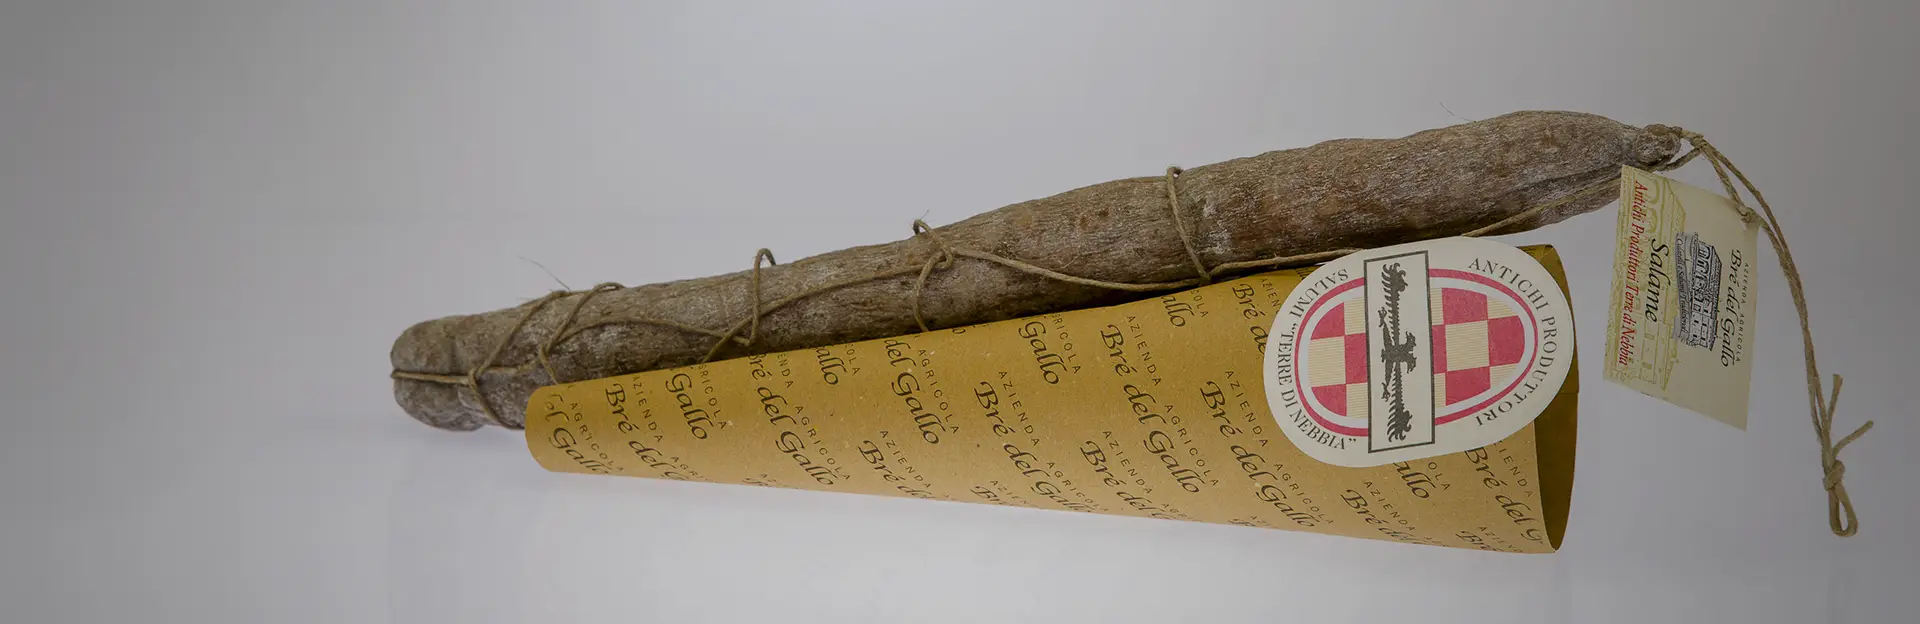 ANTICHI PRODUTTORI
SALUMI "TERRE DI NEBBIA"
AZIENDA AGRICOLA
Bré del Gallo
Salame
Antichi Produttori Terre di Nebbia
AZIENDA AGRICOLA
Bré del Gallo
AZIENDA AGRICOLA
Bré del Gallo
AZIENDA AGRICOLA
Bré del Gallo
AZIENDA AGRICOLA
Bré del Gallo